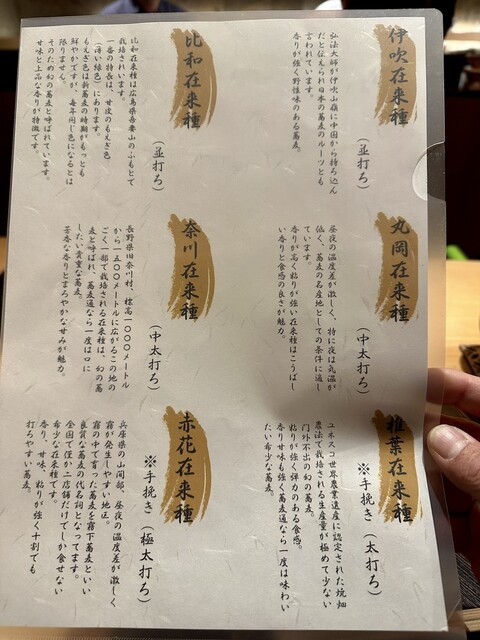 伊吹在来種
（並打ち）
弘法大師が伊吹山嶺に中国から持ち込ん
だと伝えられ日本の蕎麦のルーツとも
言われています。
香りが強く野性味のある蕎麦。
比和在来種
（並打ち）
比和在来種は広島県吾妻山のふもとで
栽培されいます。
一番の特長は、甘皮のもえぎ色
（薄い緑色）にあります。
もえぎ色は新蕎麦の時期がもっとも
鮮やかですが、毎年同じ色になるとは
限りません。
そのため幻の蕎麦と呼ばれています。
甘味と上品な香りが特徴です。
丸岡在来種
（中太打ち）
昼夜の温度差が激しく、特に夜は気温が
低く、蕎麦の名産地としての条件に適し
ています。
香りが高く粘りが強い在来種はこうばし
い香りと食感の良さが魅力。
奈川在来種
（中太打ち）
長野県旧奈川村、標高１０００メートル
から一五００メートルに広がるこの地の
ごく一部で栽培される在来種は、幻の蕎
麦と呼ばれ、蕎麦通なら一度は口に
したい貴重な蕎麦。
芳香な香りとまろやかな甘みが魅力。
椎葉在来種
※手挽き（太打ち）
ユネスコ世界農業遺産に認定された焼畑
農法で栽培される生産量が極めて少ない
門外不出の幻の蕎麦。
粘りが強く弾力のある食感。
香り甘味も強く蕎麦通なら一度は味わい
たい希少な蕎麦。
赤花在来種
※手挽き（極太打ち）
兵庫県の山間部、昼夜の温度差が激しく
霧が発生しやすい地区。
霧の中で育った蕎麦を霧下蕎麦といい
良質な蕎麦の代名詞となってます。
全国で僅か二店舗だけでしか食せない
希少な在来種です。
香り、甘味、粘りが強く十割でも
打ちやすい蕎麦。